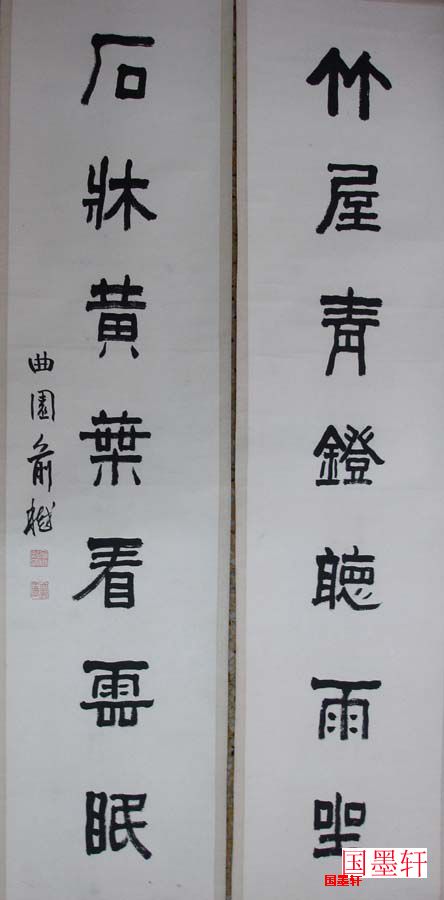 竹屋青鐙聽雨坐
石牀黄葉看雲眠
曲園俞樾
国墨轩
国墨轩